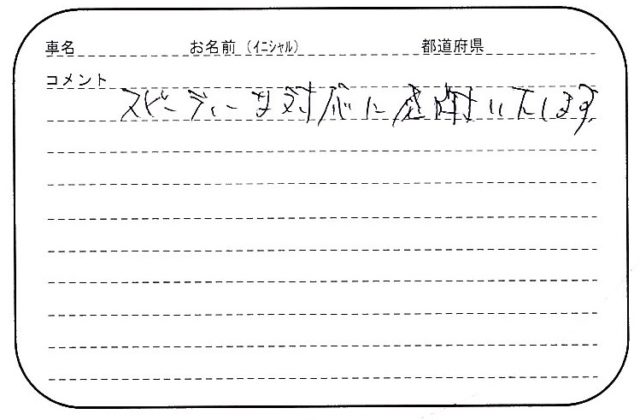 車名 お名前（ｲﾆｼｬﾙ） 都道府県
コメント
スピーディーな対応に感謝いたします